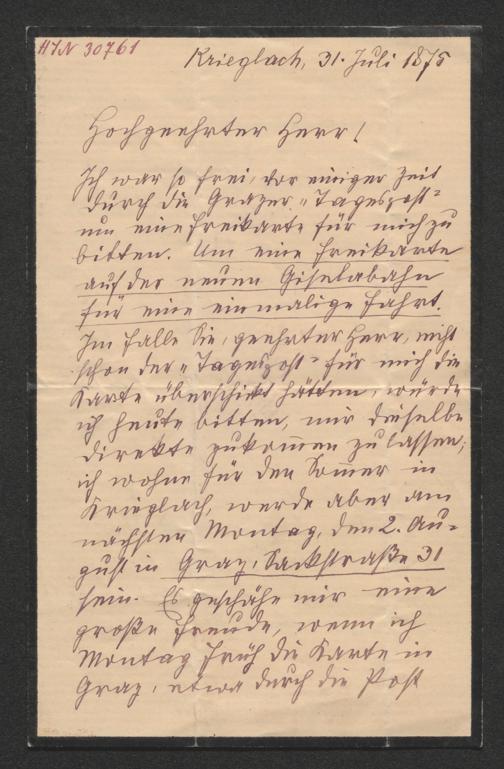 HIN 30761
Krieglach, 31. Juli 1875
Hochgeehrter Herr!
Ich war so frei, vor einiger Zeit
durch die Grazer „Tagespost"
um eine Freikarte für mich zu
bitten. Um eine Freikarte
auf der neuen Giselabahn
für eine einmalige Fahrt.
Im Falle Sie, geehrter Herr, nicht
schon der „Tagespost" für mich die
Karte überschickt hätten, würde
ich heute bitten, mir dieselbe
direkte zukomen zu lassen;
ich wohne für den Somer in
Krieglach, werde aber am
nächsten Montag, den 2. Au-
gust in Graz, Sackstraße 31
sein. Es geschähe mir eine
große Freude, wenn ich
Montag früh die Karte in
Graz, etwa durch die Post